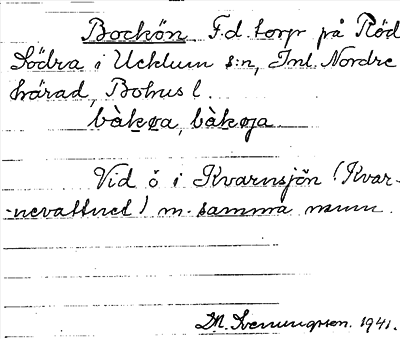 Bockön F.d. torp på Röd
Södra i Ucklum s:n, Inl. Nordre
härad, Bohus l.
bàkøa, bàkøja
Vid ö i Kvarnsjön (Kvar-
-nevattnet) m. samma namn.
M. Svenungsson. 1941.